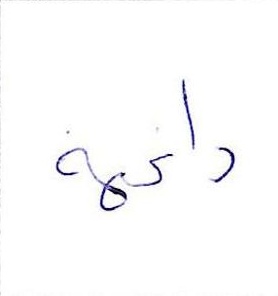 دائمة